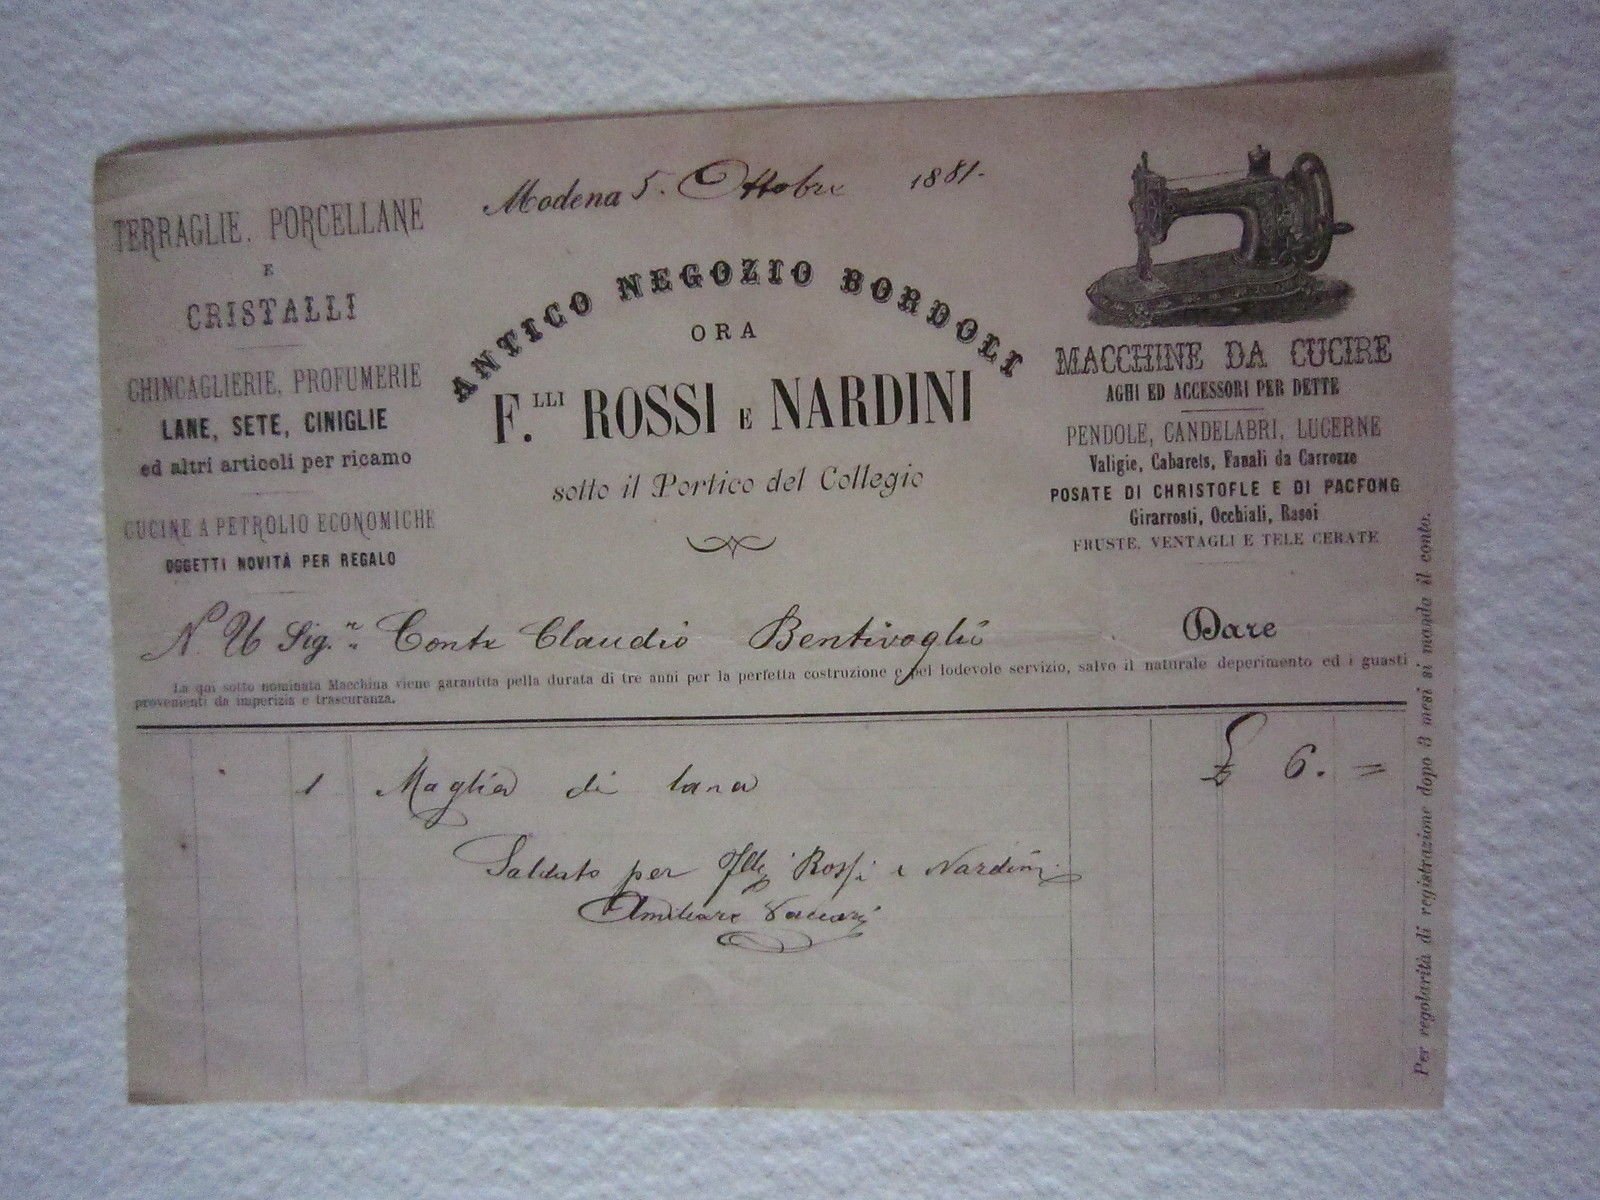 Modena 5. Ottobre 1881.
TERRAGLIE, PORCELLANE
E
CRISTALLI
CHINCAGLIERIE, PROFUMERIE
LANE, SETE, CINIGLIE
ed altri articoli per ricamo
CUCINE A PETROLIO ECONOMICHE
OGGETTI NOVITÀ PER REGALO
ANTICO NEGOZIO BORDOLI
ORA
F.LLI ROSSI E NARDINI
sotto il Portico del Collegio
MACCHINE DA CUCIRE
AGHI ED ACCESSORI PER DETTE
PENDOLE, CANDELABRI, LUCERNE
Valigie, Cabarets, Fanali da Carrozze
POSATE DI CHRISTOFLE E DI PACFONG
Girarrosti, Occhiali, Rasoi
FRUSTE, VENTAGLI E TELE CERATE
N. U Sig.r Conte Claudio Bentivoglio Dare
La qui sotto nominata Macchina viene garantita pella durata di tre anni per la perfetta costruzione e pel lodevole servizio, salvo il naturale deperimento ed i guasti
provenienti da imperizia e trascuranza.
1 Maglia di lana £ 6. =
Saldato per Flli Rossi e Nardini
Amilcare Vaccari
Per regolarità di registrazione dopo 3 mesi si manda il conto.